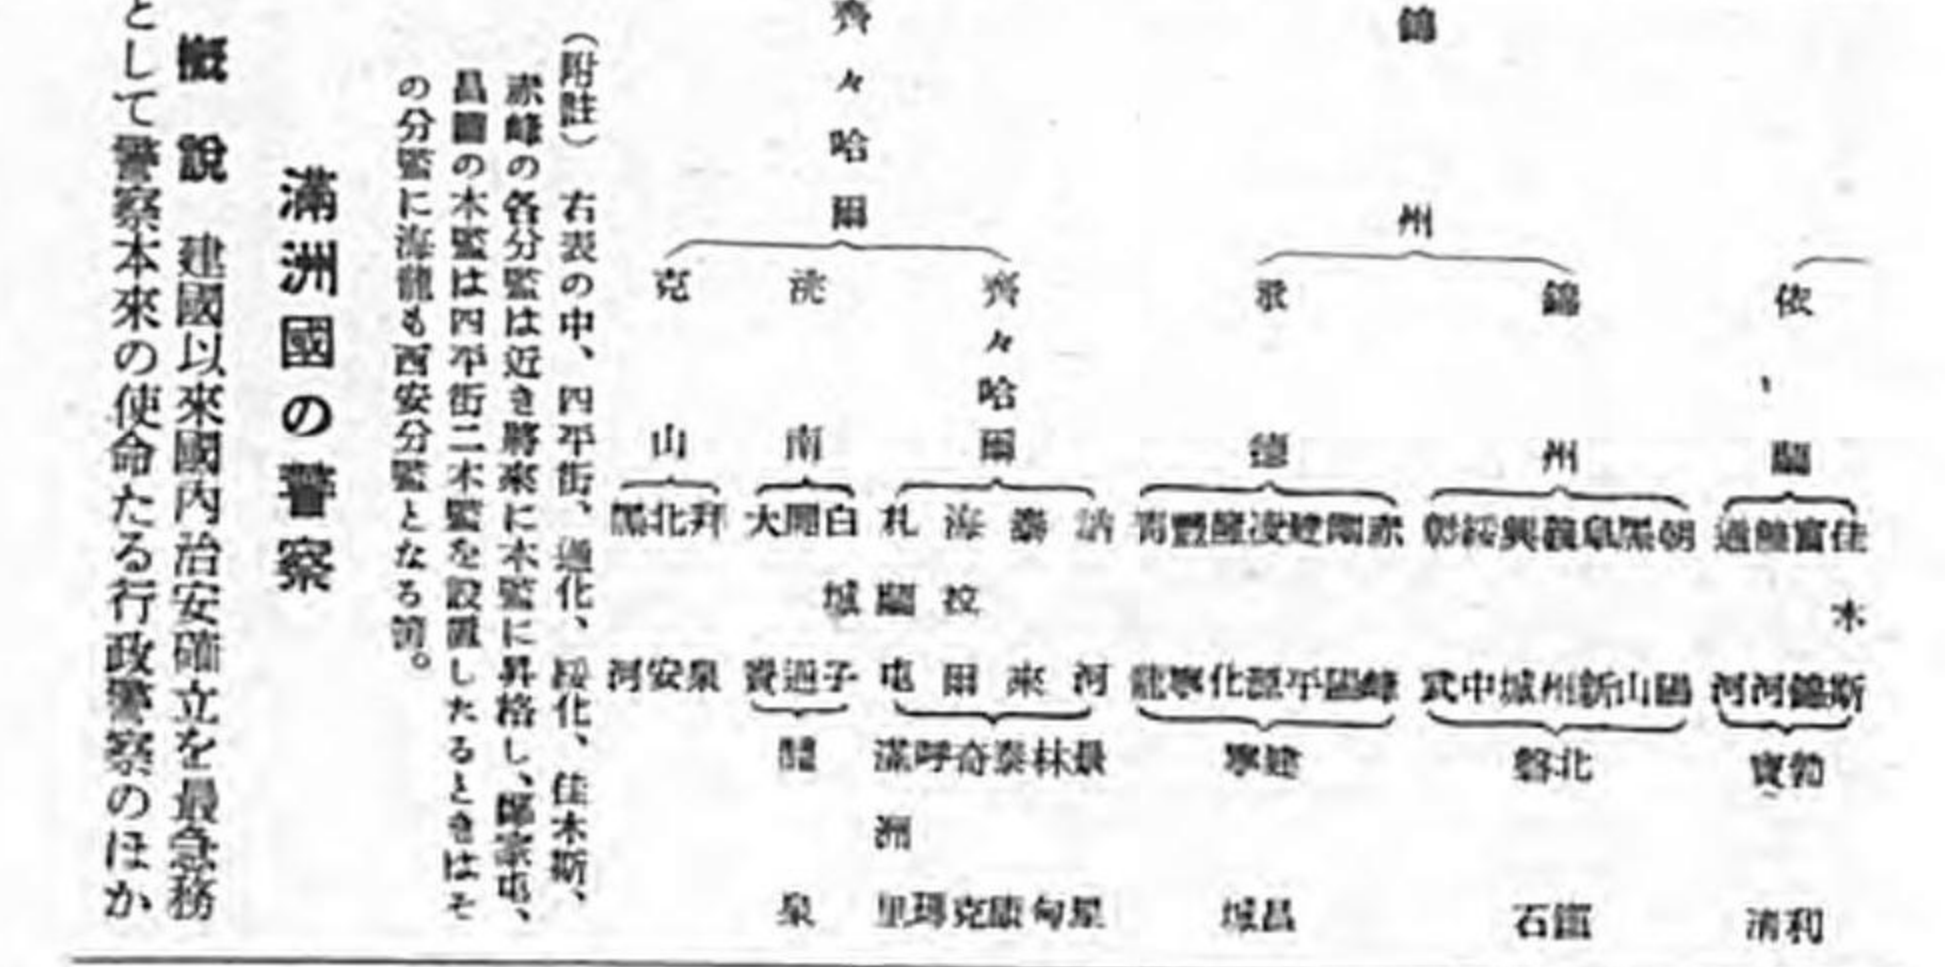 依蘭
佳木斯
富錦
饒河
通河
勃利
寶清
錦州
錦州
朝陽
黑山
阜新
義州
興城
綏中
彰武
北鎭
磐石
承德
赤峰
建平
凌源
隆化
豐寧
靑龍
建昌
寧城
齊々哈爾
齊々哈爾
訥河
泰來
海拉爾
札蘭屯
景星
林甸
泰康
奇克
呼瑪
滿洲里
洮南
白城子
開通
大賚
醴泉
克山
拜泉
北安
黑河
(附註) 右表の中、四平街、通化、綏化、佳木斯、
赤峰の各分監は近き將來に本監に昇格し、鄭家屯、
昌圖の本監は四平街二本監を設置したるときはそ
の分監に海龍も西安分監となる筈。
滿洲國の警察
概說 建國以來國內治安確立を最急務
として警察本來の使命たる行政警察のほか